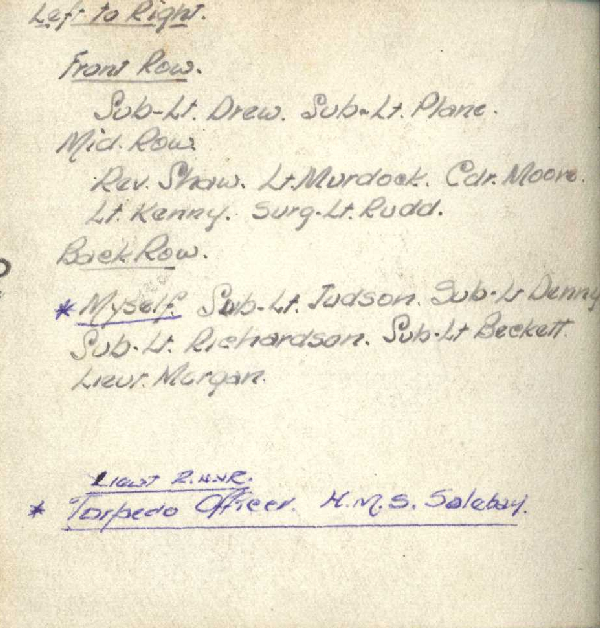 Left to Right.
Front Row.
Sub-Lt. Drew. Sub-Lt. Plane.
Mid. Row.
Rev. Shaw. Lt. Murdock. Cdr. Moore.
Lt. Kenny. Surg-Lt. Rudd.
Back Row.
* Myself. Sub-Lt. Judson. Sub-Lt Denny
Sub-Lt. Richardson. Sub-Lt Beckett.
Lieut. Morgan.
Lieut R.N.V.R.
* Torpedo Officer. H.M.S. Solebay.